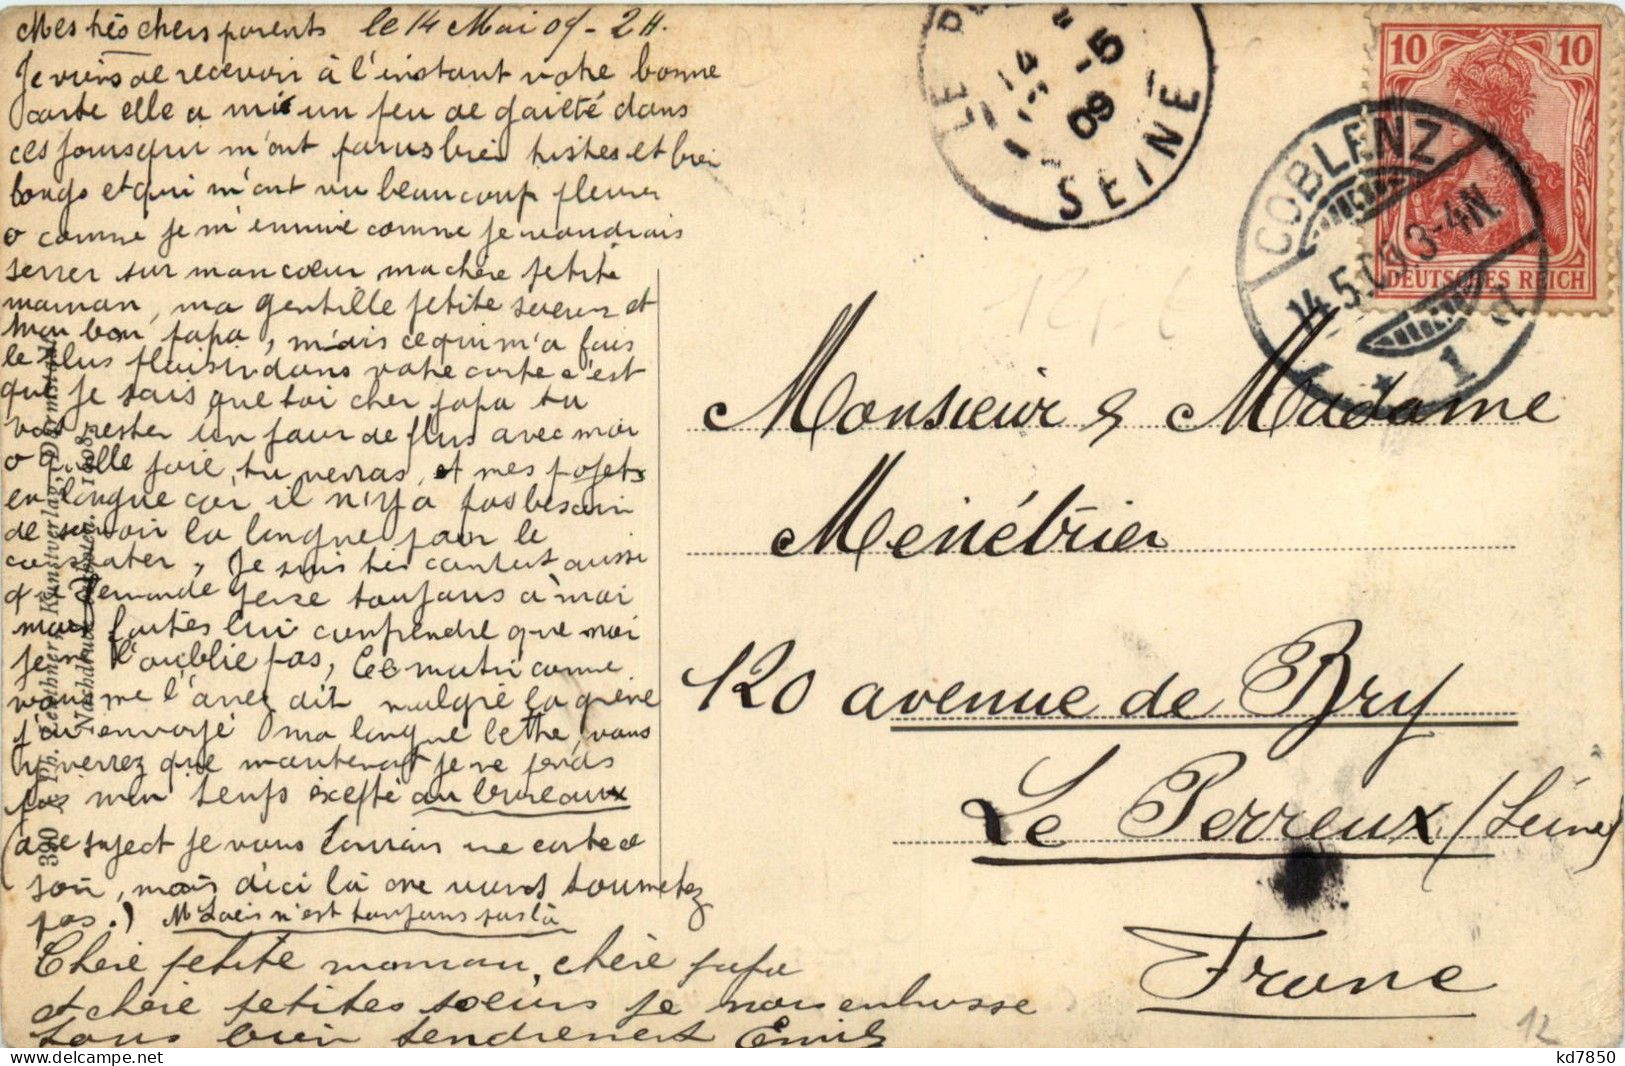 Mes très chers parents le 14 Mai 09 - 2H.
Je viens de recevoir à l'instant votre bonne
carte elle a mis un peu de gaieté dans
ces jours qui m'ont parus bien tristes et bien
longs et qui m'ont vu beaucoup pleurer
o comme je m'ennuie comme je voudrais
serrer sur mon coeur ma chère petite
maman, ma gentille petite soeur et
mon bon papa, mais ce qui m'a fais
le plus plaisir dans votre carte c'est
que je sais que toi cher papa tu
vas rester un jour de plus avec moi
o quelle joie, tu verras, et mes projets
en langue car il n'y a pas besoin
de savoir la langue pour le
constater, Je suis très content aussi
demande je toujours à moi
mais faites lui comprendre que moi
je ne l'oublie pas, Ce matin comme
vous me l'avez dit malgré la grève
j'ai envoyé ma longue lettre, vous
y verrez que maintenant je ne perds
pas mon temps excepté au bureaux
(à ce sujet je vous une carte ce
soir, mais d'ici là ne vous tourmetez
pas.) Mr Louis n'est toujours pas là
Chère petite maman, chère papa
et chère petites soeurs je vous embrasse
tous bien tendrement Emile
390 Ph. Leuthner, Kunstverlag, Darmstadt
Nachdruck verboten. 1908
LE
14
-5
09
SEINE
10 10
DEUTSCHES REICH
COBLENZ
14.5.09.3-4N.
* 1
Monsieur & Madame
Menétrier
120 avenue de Bry
Le Perreux (Seine)
France
12
kd7850